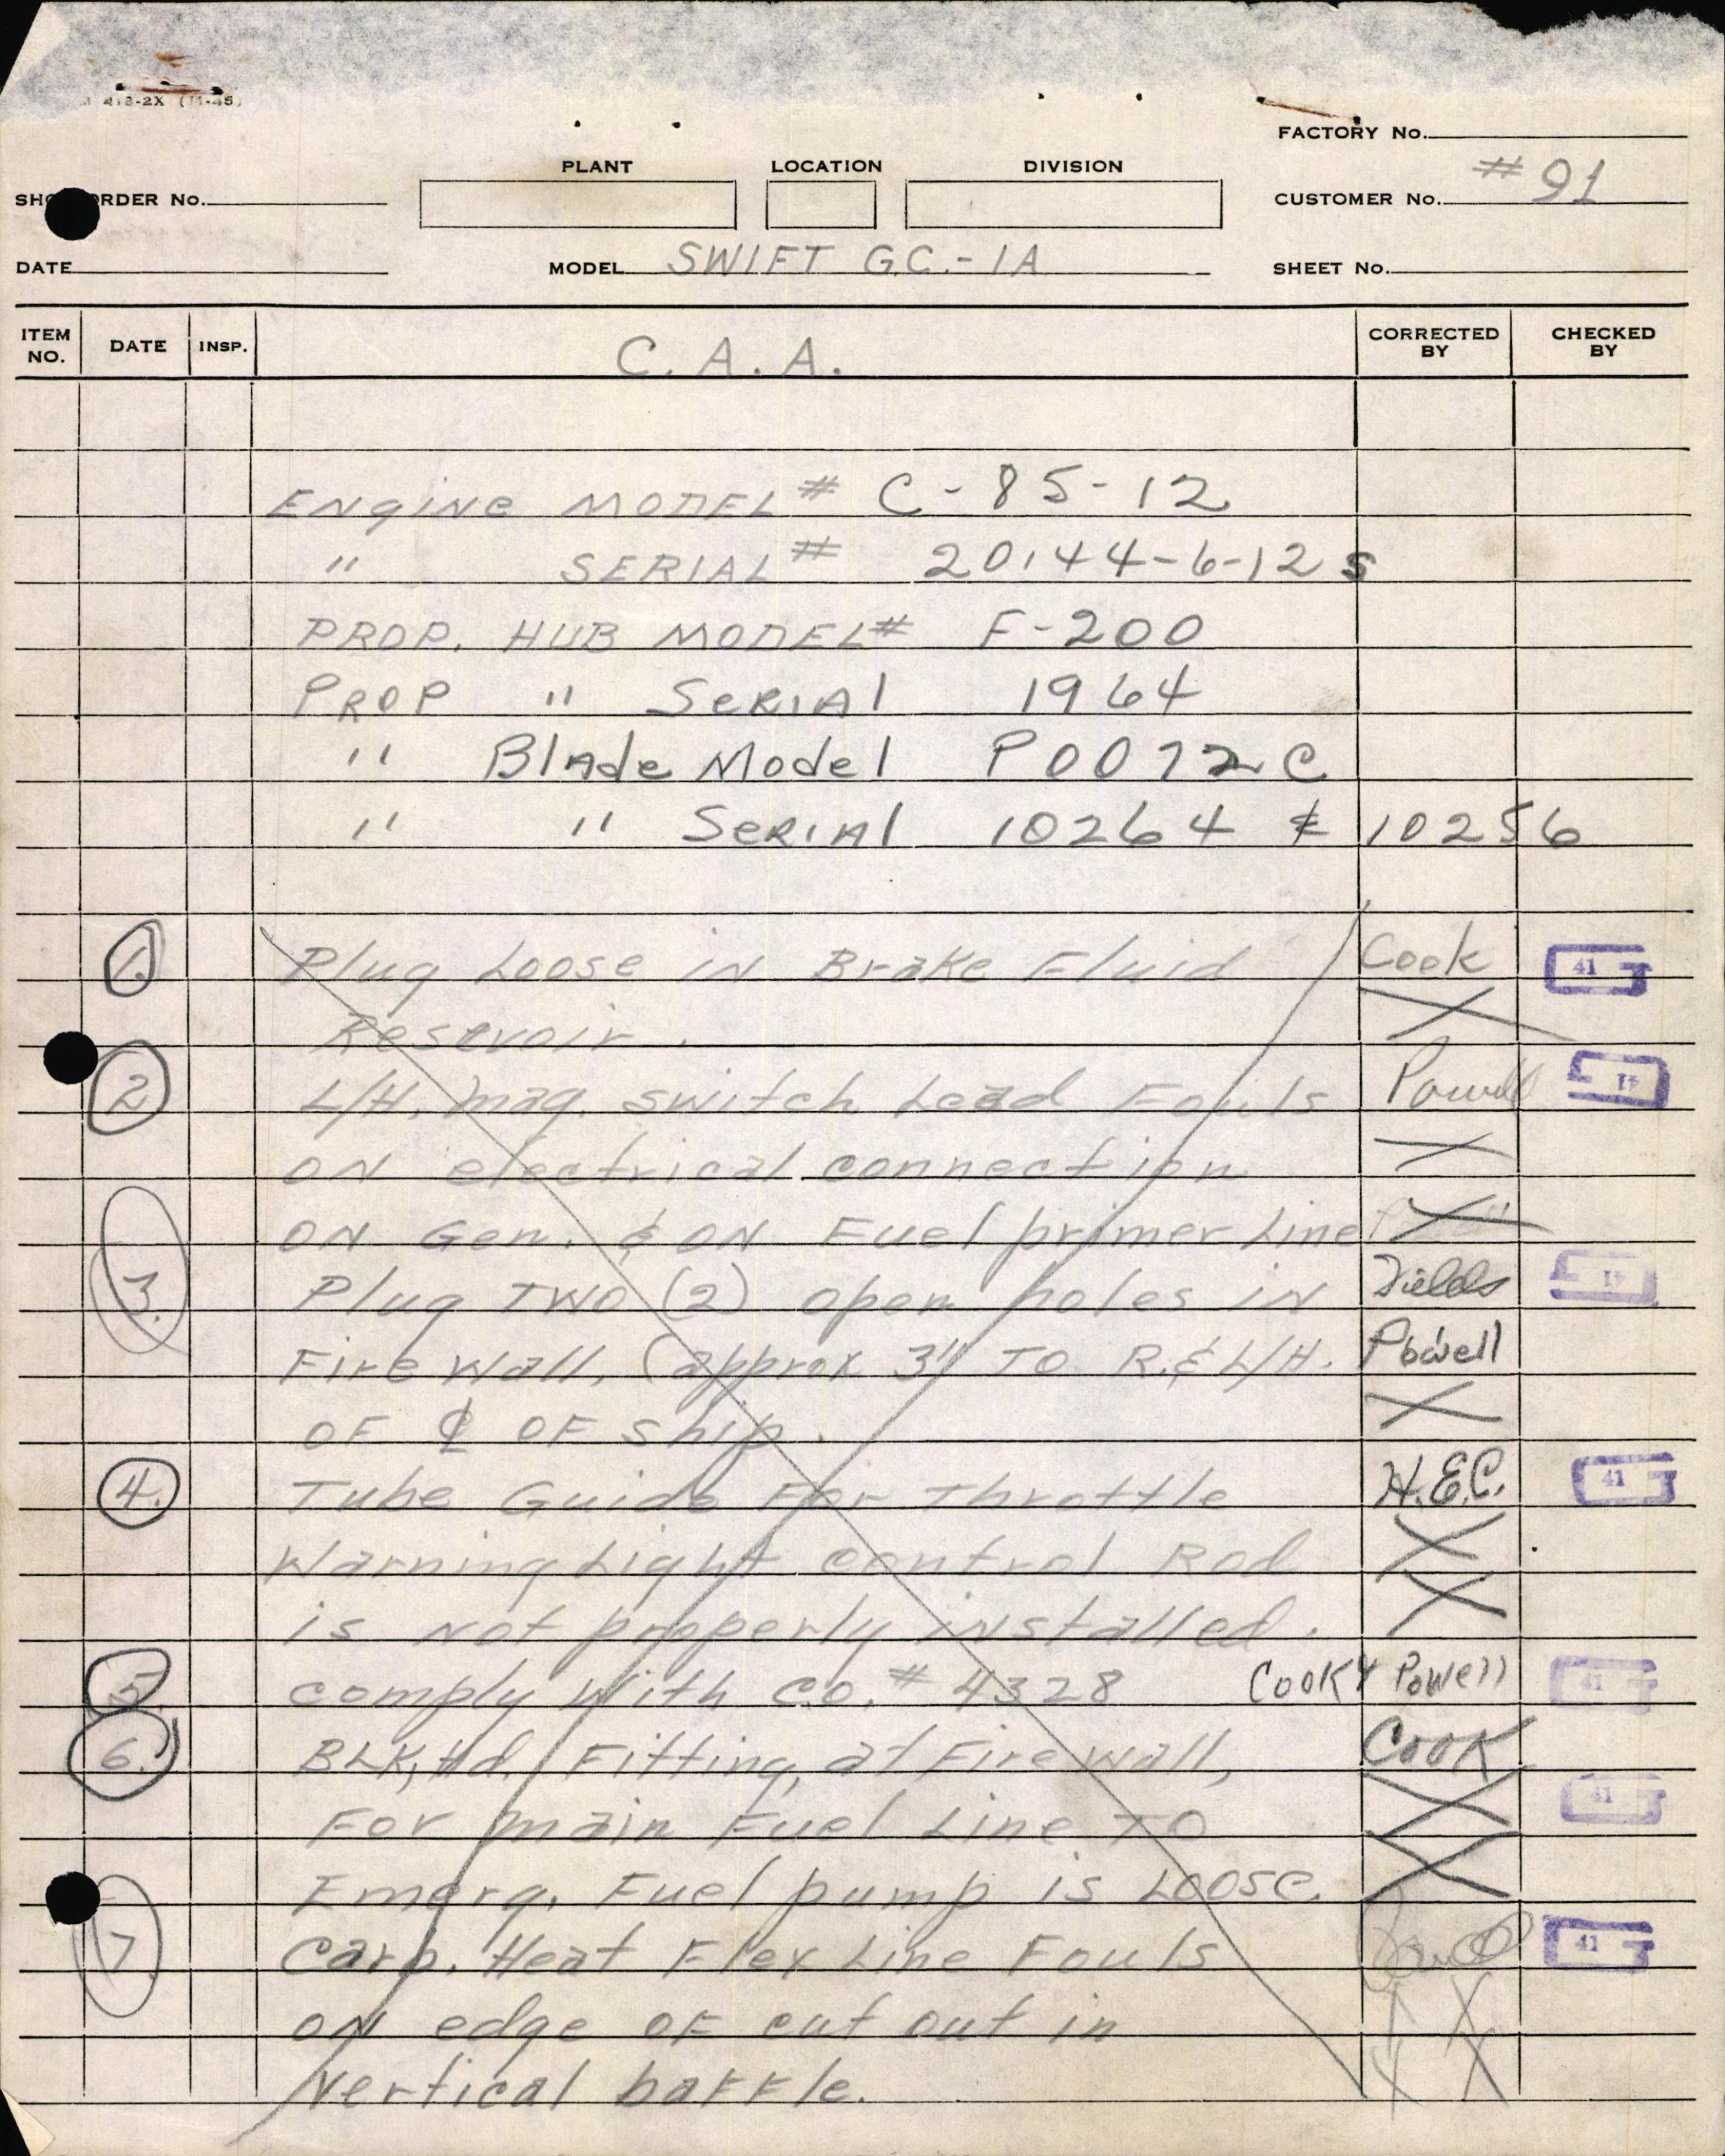 418-2X (11-45)
FACTORY No.
PLANT LOCATION DIVISION
SHOP ORDER No. CUSTOMER No. #91
DATE MODEL SWIFT G.C.-1A SHEET No.
ITEM NO. DATE INSP. C.A.A. CORRECTED BY CHECKED BY
ENgiNe MODEL # C-85-12
" SERIAL # 20144-6-12 S
PROP. HUB MODEL # F-200
PROP " SeRIAl 1964
" BlAde Model P0072C
" " SeRIAl 10264 & 10256
1. Plug Loose iN Brake Fluid Cook 41
Resevoir.
2 L/H. mag. switch Lead Fouls Powell 41
ON electrical connection
ON Gen. & ON Fuel primer Line
3. Plug TWO (2) open holes iN Fields 41
Fire Wall, (approx 3" TO R.& L/H. Powell
OF ℄ OF ship.
4. Tube Guide For Throttle H.E.C. 41
Warning Light control Rod
is Not properly iNstalled.
5. comply With C.O. # 4328 Cook & Powell 41
6. BLK, Hd. Fitting, at Fire Wall, Cook
For main Fuel Line TO 41
Emerg. Fuel pump is Loose.
7. Carb. Heat Flex Line Fouls 41
ON edge OF cut out in
Vertical baffle.